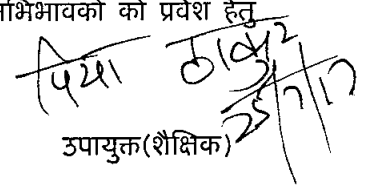 अभिभावकों को प्रवेश हेतु
पिया ठाकुर
25/7/17
उपायुक्त(शैक्षिक)